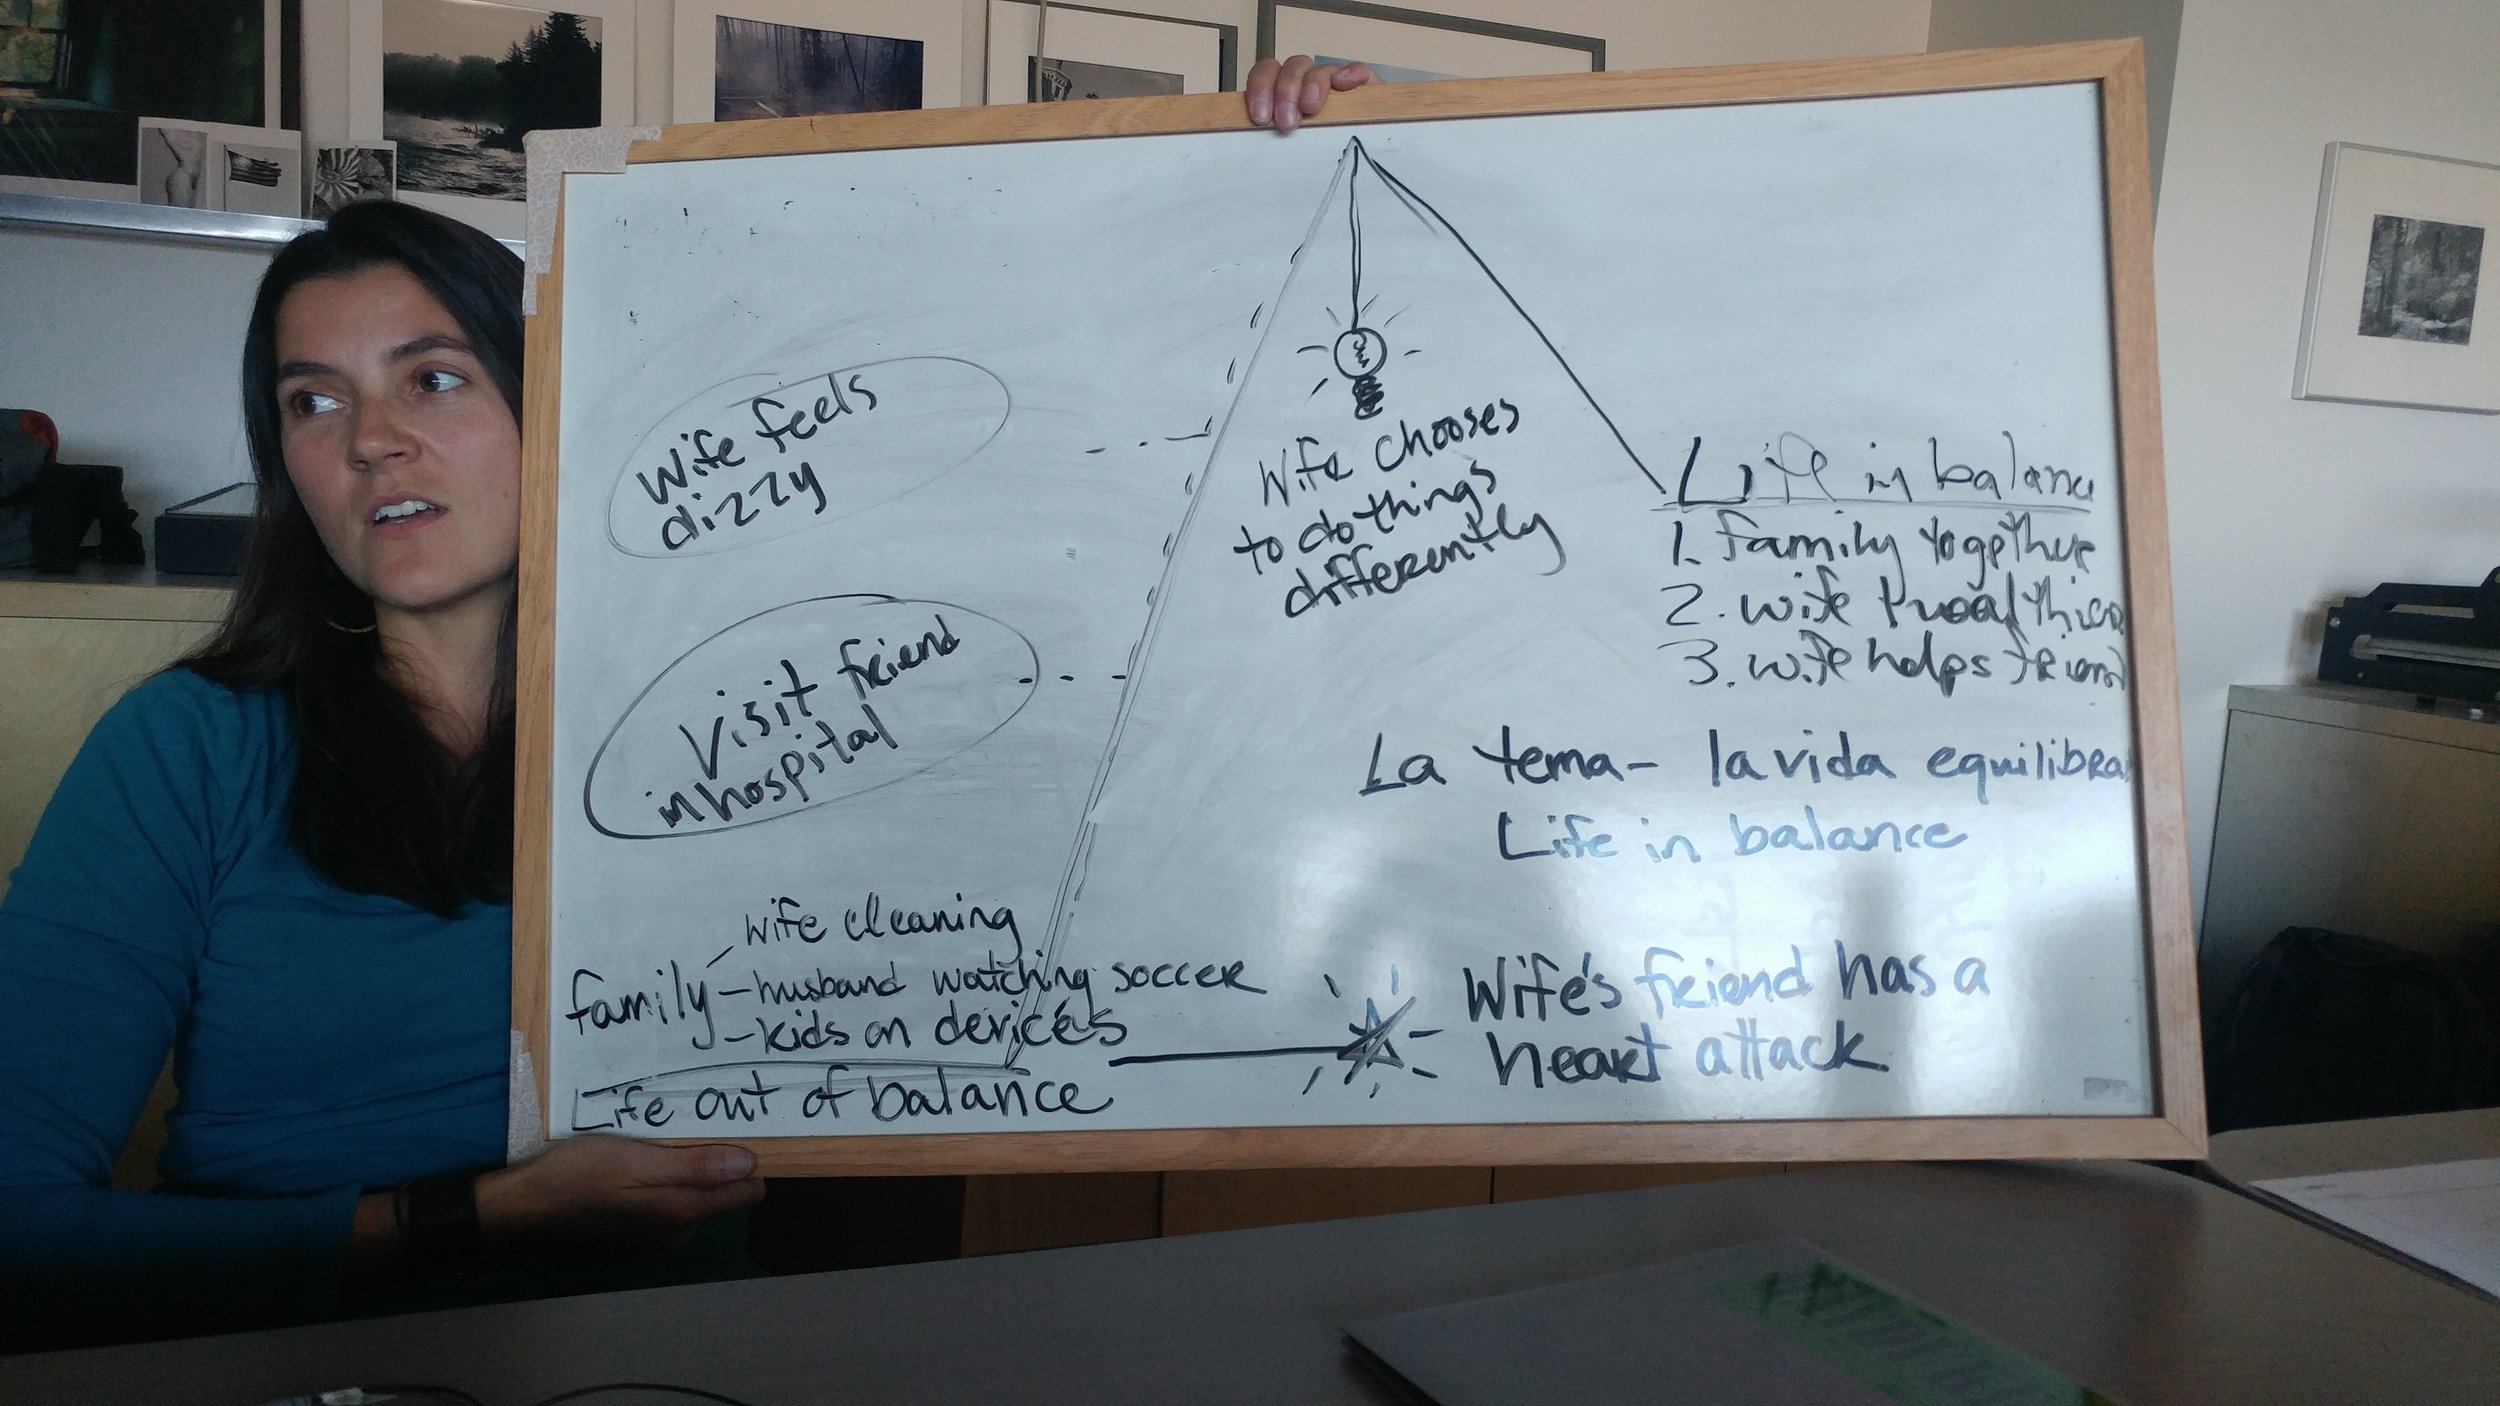 Wife feels
dizzy
Visit friend
in hospital
wife cleaning
family - husband watching soccer
- kids on devices
Life out of balance
Wife chooses
to do things
differently
Life in balance
1. family together
2. wife
3. wife helps friend
La tema - la vida equilibra
Life in balance
Wife's friend has a
heart attack